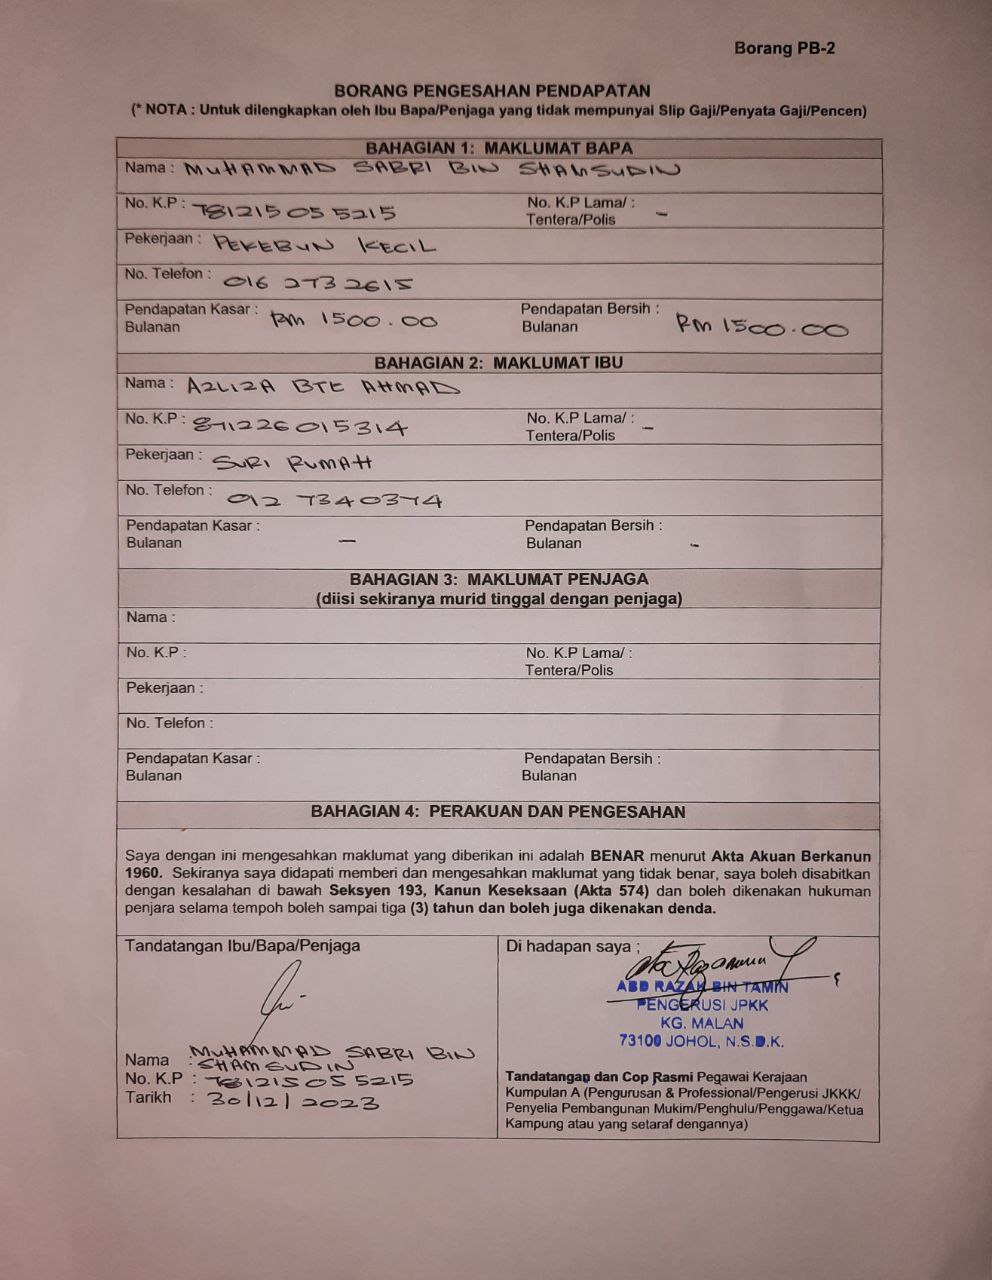 Borang PB-2
BORANG PENGESAHAN PENDAPATAN
(* NOTA : Untuk dilengkapkan oleh Ibu Bapa/Penjaga yang tidak mempunyai Slip Gaji/Penyata Gaji/Pencen)
BAHAGIAN 1: MAKLUMAT BAPA
Nama : MUHAMMAD SABRI BIN SHAMSUDIN
No. K.P : 781215 05 5215 No. K.P Lama/ : –
Tentera/Polis
Pekerjaan : PEKEBUN KECIL
No. Telefon : 016 2732615
Pendapatan Kasar : RM 1500.00 Pendapatan Bersih : RM 1500.00
Bulanan Bulanan
BAHAGIAN 2: MAKLUMAT IBU
Nama : AZLIZA BTE AHMAD
No. K.P : 015314 No. K.P Lama/ : –
Tentera/Polis
Pekerjaan : SURI RUMAH
No. Telefon : 012 7340374
Pendapatan Kasar : – Pendapatan Bersih : –
Bulanan Bulanan
BAHAGIAN 3: MAKLUMAT PENJAGA
(diisi sekiranya murid tinggal dengan penjaga)
Nama :
No. K.P : No. K.P Lama/ :
Tentera/Polis
Pekerjaan :
No. Telefon :
Pendapatan Kasar : Pendapatan Bersih :
Bulanan Bulanan
BAHAGIAN 4: PERAKUAN DAN PENGESAHAN
Saya dengan ini mengesahkan maklumat yang diberikan ini adalah BENAR menurut Akta Akuan Berkanun
1960. Sekiranya saya didapati memberi dan mengesahkan maklumat yang tidak benar, saya boleh disabitkan
dengan kesalahan di bawah Seksyen 193, Kanun Keseksaan (Akta 574) dan boleh dikenakan hukuman
penjara selama tempoh boleh sampai tiga (3) tahun dan boleh juga dikenakan denda.
Tandatangan Ibu/Bapa/Penjaga
Nama : MUHAMMAD SABRI BIN
SHAMSUDIN
No. K.P : 781215 05 5215
Tarikh : 30/12/2023
Di hadapan saya ;
ABD RAZAK BIN TAMIN
PENGERUSI JPKK
KG. MALAN
73100 JOHOL, N.S.D.K.
Tandatangan dan Cop Rasmi Pegawai Kerajaan
Kumpulan A (Pengurusan & Professional/Pengerusi JKKK/
Penyelia Pembangunan Mukim/Penghulu/Penggawa/Ketua
Kampung atau yang setaraf dengannya)